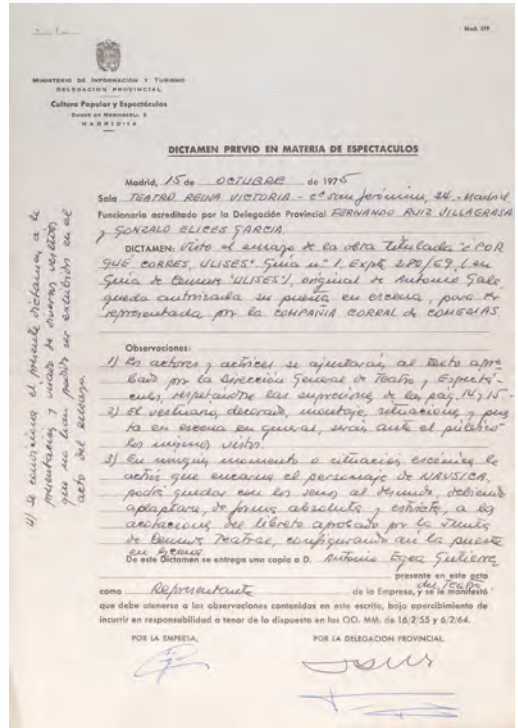 Mod. 279
MINISTERIO DE INFORMACIÓN Y TURISMO
DELEGACIÓN PROVINCIAL
Cultura Popular y Espectáculos
DUQUE DE MEDINACELI, 2
MADRID-14
DICTAMEN PREVIO EN MATERIA DE ESPECTACULOS
Madrid, 15 de OCTUBRE de 1975
Sala TEATRO REINA VICTORIA - cª San Jerónimo, 24 - Madrid
Funcionario acreditado por la Delegación Provincial FERNANDO RUIZ VILLAGRASA
y GONZALO ELICES GARCIA
DICTAMEN: Visto el ensayo de la obra titulada "¿POR
QUÉ CORRES, ULISES". Guía nº 1. Expte 280/69, (en
Guía de Censura "ULISES"), original de Antonio Gala
queda autorizada su puesta en escena, para ser
representada por la COMPAÑIA CORRAL de COMEDIAS
Observaciones:
1) Los actores y actrices se ajustarán al texto apro-
bado por la Dirección General de Teatro y Espectá-
culos, respetandose las supresiones de las pag. 14 y 15.-
2) El vestuario, decorado, montaje, situaciones y pues
ta en escena en general, serán ante el público
los mismos vistos.
3) En ningún momento o situación escénica la
actriz que encarna el personaje de NAUSICA,
podrá quedar con los senos al desnudo, debiendo
adaptarse, de forma absoluta y estricta, a las
acotaciones del libreto aprobado por la Junta
de Censura Teatral, configurando así la puesta
en escena.
De este Dictamen se entrega una copia a D. Antonio Egea Gutierrez
presente en este acto
como Representante del Teatro
de la Empresa, y se le manifestó
que debe atenerse a las observaciones contenidas en este escrito, bajo apercibimiento de
incurrir en responsabilidad a tenor de lo dispuesto en las OO. MM. de 16/2/55 y 6/2/64.
POR LA EMPRESA,
POR LA DELEGACION PROVINCIAL,
4) Se condiciona el presente dictamen, a la
presentación y visado de diversos vestidos
que no han podido ser exhibidos en el
acto del ensayo.